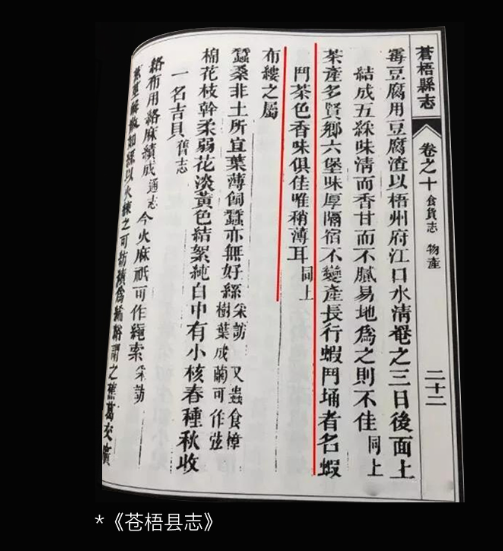 蒼梧縣志 卷之十 食貨志 物產 二十二
霉豆腐用豆腐渣以梧州府江口水清罨之三日後面上
結成五綵味清而香甘而不膩易地為之則不佳 同上
茶產多賢鄉六堡味厚隔宿不變產長行蝦鬥埇者名蝦
鬥茶色香味俱佳唯稍薄耳 同上
布縷之屬
蠶桑非土所宜葉薄飼蠶亦無好絲 采訪 又蟲食樟
樹葉成繭可作弦
棉花枝幹柔弱花淡黃色結絮純白中有小核春種秋收
一名吉貝 舊志
絡布用絡麻績成 通志 今火麻祇可作繩索 采訪
如絲以火練之可紡績為絺綌謂之蕉葛交廣
*《苍梧县志》